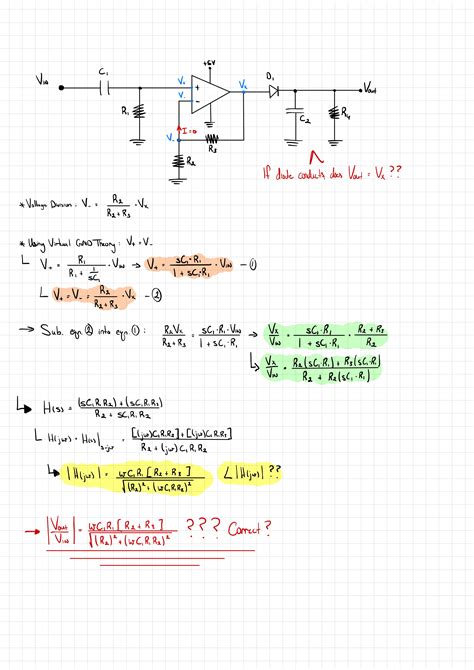 +5V
Vin
C₁
V₊
V₋
Vx
D₁
Vout
R₁
I=0
V₋
R₃
C₂
R₄
R₂
If diode conducts does Vout = Vx ??
* Voltage Division: V₋ = R₂/(R₂+R₃) · Vx
* Using Virtual GND Theory: V₊ = V₋
V₊ = R₁/(R₁ + 1/sC₁) · Vin → V₊ = sC₁·R₁/(1 + sC₁·R₁) · Vin – ①
V₊ = V₋ = R₂/(R₂+R₃) · Vx – ②
→ Sub. eqn. ② into eqn. ①: R₂Vx/(R₂+R₃) = sC₁·R₁·Vin/(1 + sC₁·R₁) → Vx/Vin = sC₁·R₁/(1 + sC₁·R₁) · (R₂+R₃)/R₂
Vx/Vin = (R₂(sC₁·R₁) + R₃(sC₁·R₁))/(R₂ + R₂(sC₁·R₁))
H(s) = ((sC₁R₁R₂)+(sC₁R₁R₃))/(R₂ + sC₁R₁R₂)
H(jω) = H(s)|s=jω = ([(jω)C₁R₁R₂]+[(jω)C₁R₁R₃])/(R₂ + (jω)C₁R₁R₂)
|H(jω)| = ωC₁R₁[R₂+R₃]/√((R₂)²+(ωC₁R₁R₂)²) ∠|H(jω)| ??
→ |Vout/Vin| = ωC₁R₁[R₂+R₃]/√((R₂)²+(ωC₁R₁R₂)²) ??? Correct?